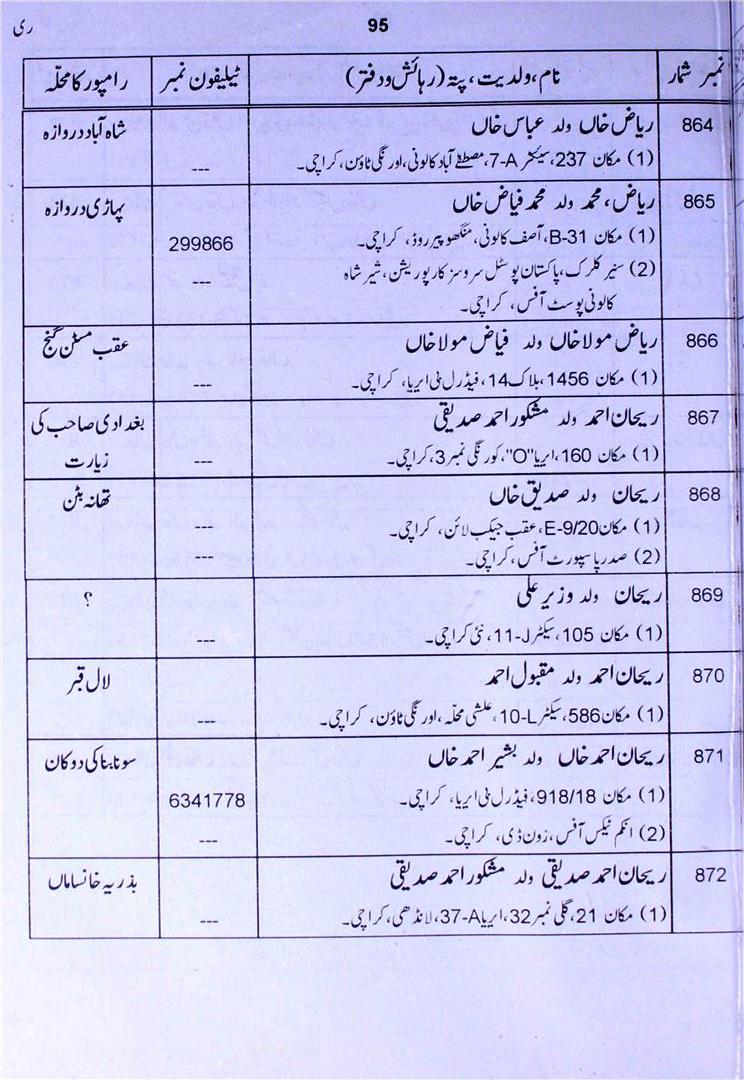 95
ری
نمبر شمار
نام، ولدیت، پتہ (رہائش و دفتر)
ٹیلیفون نمبر
رامپور کا محلّہ
864
ریاض خاں ولد عباس خاں
شاہ آباد دروازہ
(1) مکان 237، سیکٹر 7-A، مصطفےٰ آباد کالونی، اورنگی ٹاؤن، کراچی۔
---
865
ریاض، محمد ولد محمد فیاض خاں
پہاڑی دروازہ
(1) مکان B-31، آصف کالونی، منگھو پیر روڈ، کراچی۔
299866
(2) سنیر کلرک، پاکستان پوسٹل سروسز کارپوریشن، شیر شاہ
---
کالونی پوسٹ آفس، کراچی۔
866
ریاض مولا خاں ولد فیاض مولا خاں
عقب مسٹن گنج
(1) مکان 1456، بلاک 14، فیڈرل بی ایریا، کراچی۔
---
867
ریحان احمد ولد مشکور احمد صدیقی
بغدادی صاحب کی
(1) مکان 160، ایریا "O"، کورنگی نمبر 3، کراچی۔
---
زیارت
868
ریحان ولد صدیق خاں
تھانہ ٹین
(1) مکان E-9/20، عقب جیکب لائن، کراچی۔
---
(2) صدر پاسپورٹ آفس، کراچی۔
---
869
ریحان ولد وزیر علی
؟
(1) مکان 105، سیکٹر 11-L، نئی کراچی۔
---
870
ریحان احمد ولد مقبول احمد
لال قبر
(1) مکان 586، سیکٹر 10-L، علشی محلہ، اورنگی ٹاؤن، کراچی۔
---
871
ریحان احمد خاں ولد بشیر احمد خاں
سوتا بنا کی دوکان
(1) مکان 918/18، فیڈرل بی ایریا، کراچی۔
6341778
(2) انکم ٹیکس آفس، زون ڈی، کراچی۔
---
872
ریحان احمد صدیقی ولد مشکور احمد صدیقی
بذریہ خانساماں
(1) مکان 21، گلی نمبر 32، ایریا 37-A، لانڈھی، کراچی۔
---